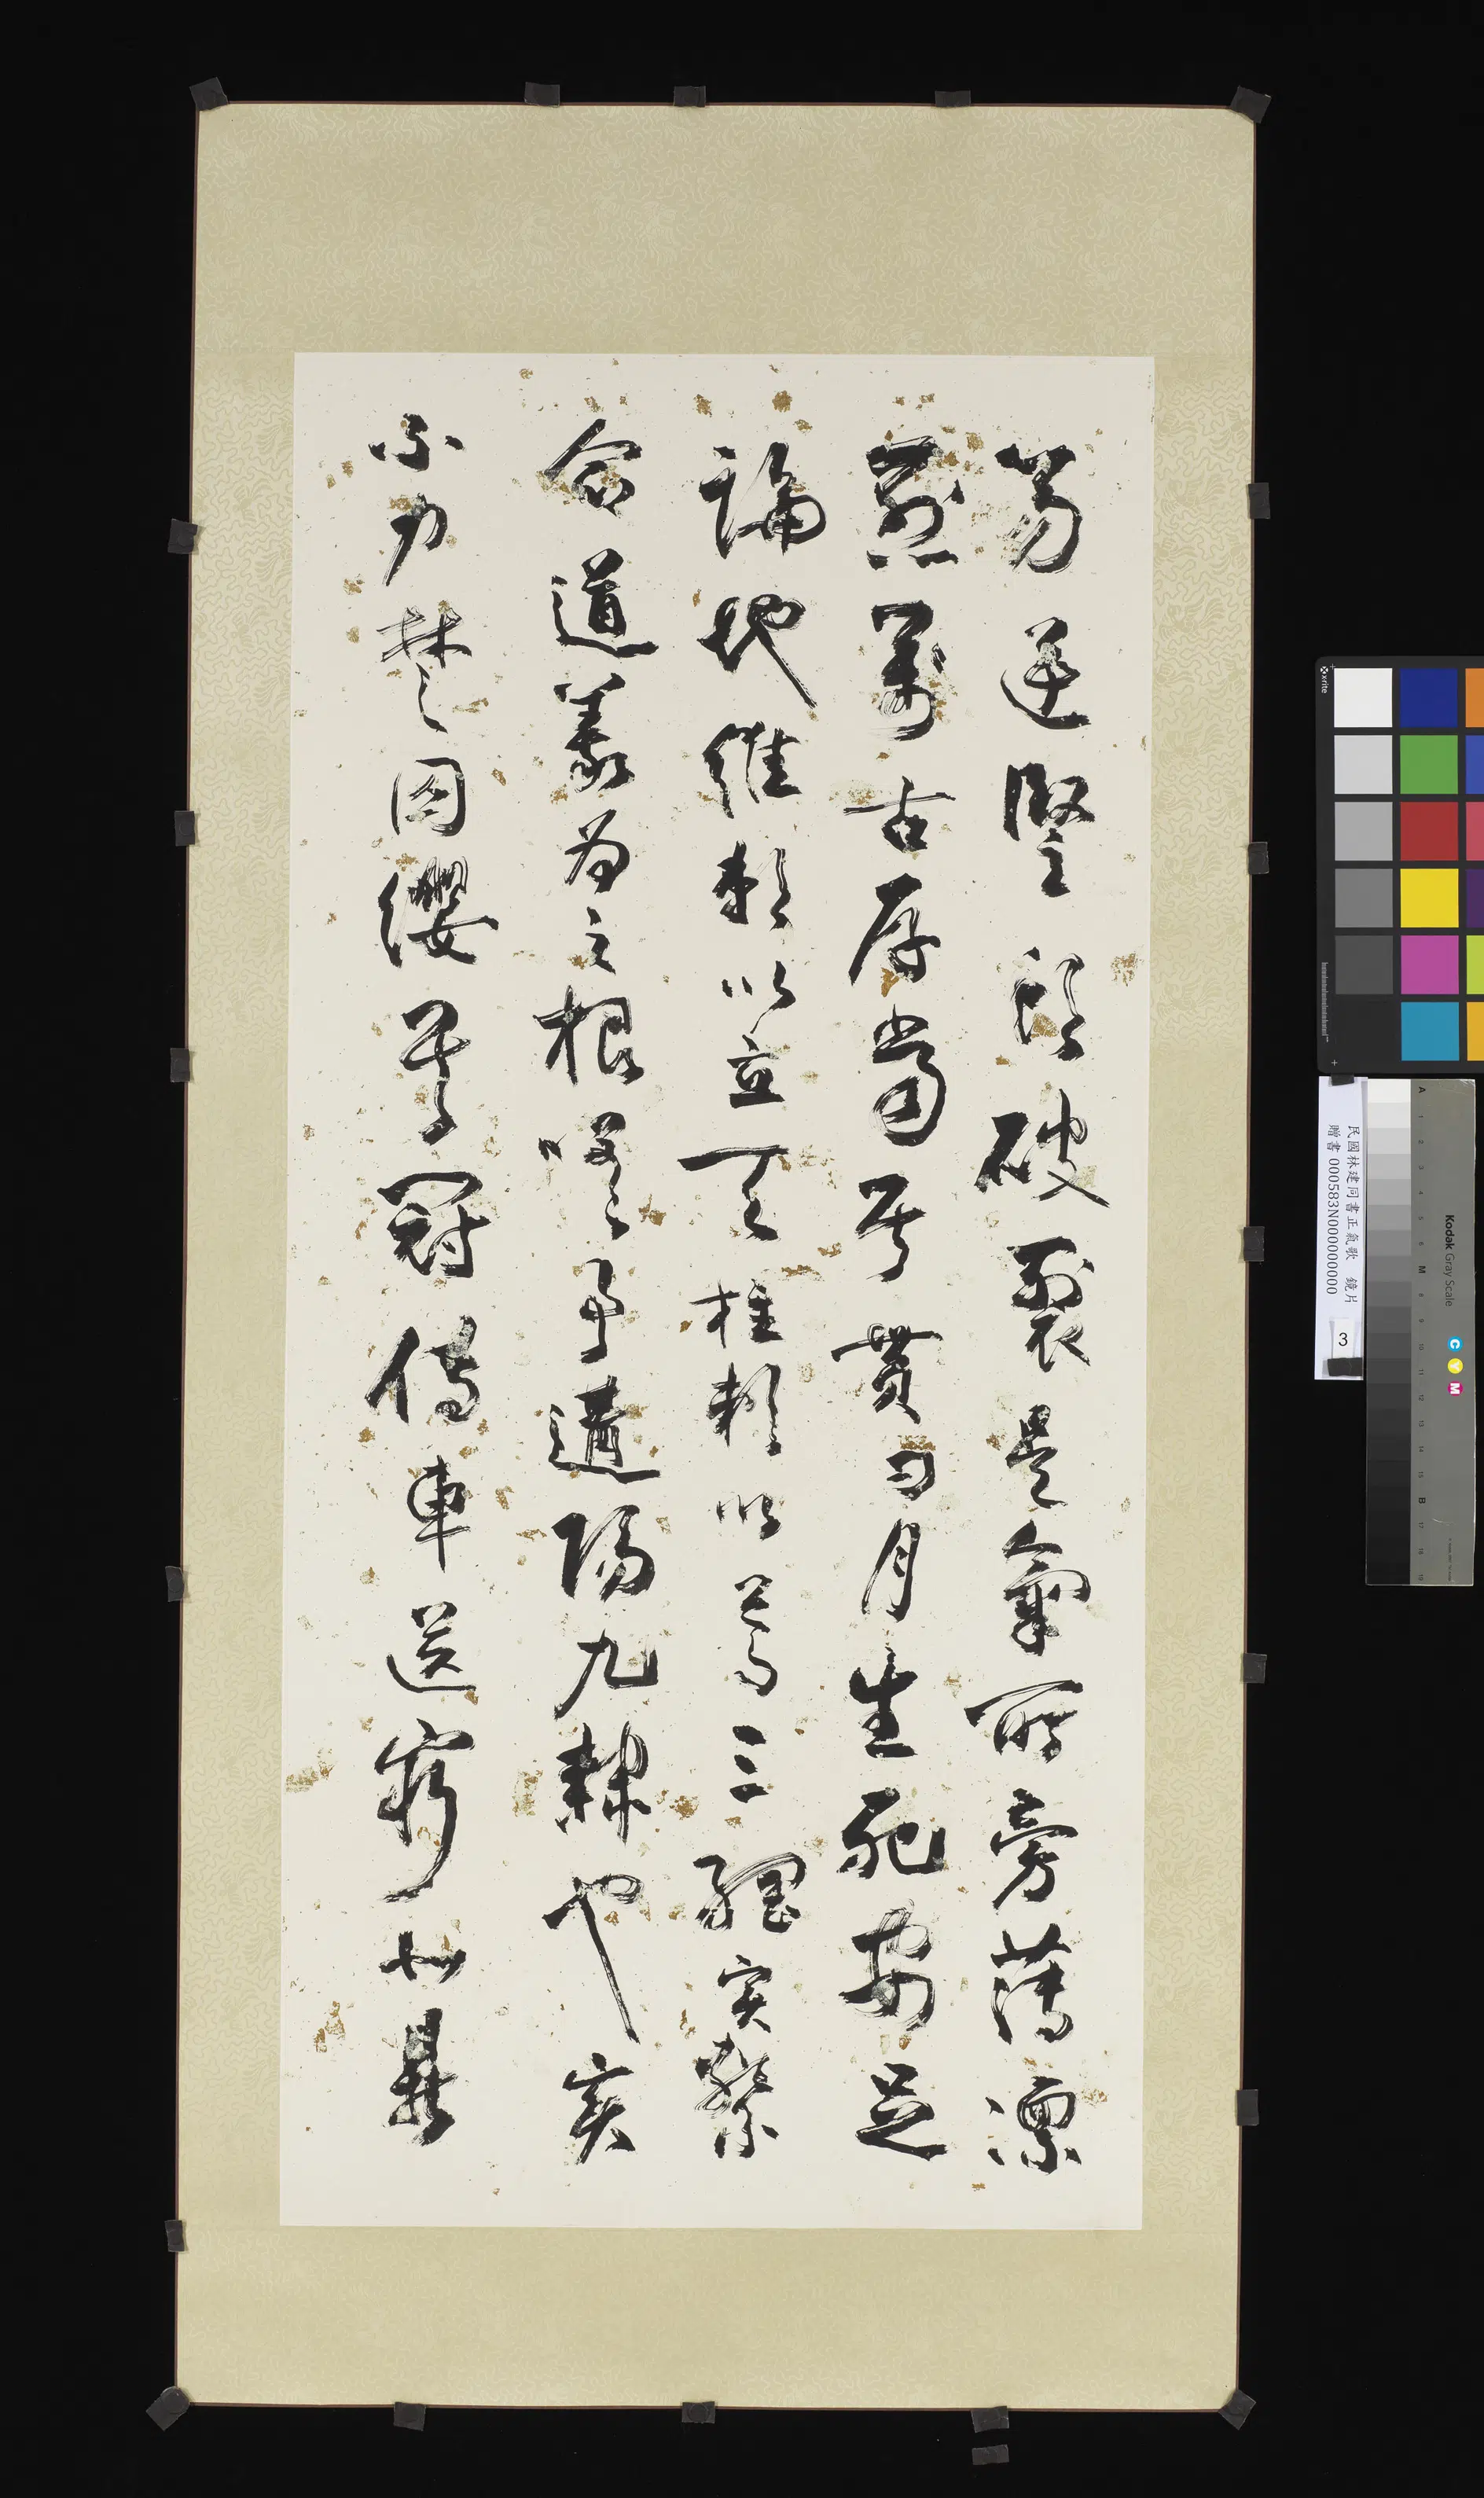 笏逆豎頭破裂是氣所旁薄凛
烈萬古存當其貫日月生死安足
論地維賴以立天柱賴以尊三綱實繫
命道義為之根嗟予遘陽九隸也實
不力楚囚纓其冠傳車送窮北鼎
民國林建同書正氣歌 鏡片
贈書 000583N000000000
3
x-rite
Kodak Gray Scale
C Y M
A 1 2 3 4 5 6 M 8 9 10 11 12 13 14 15 B 17 18 19